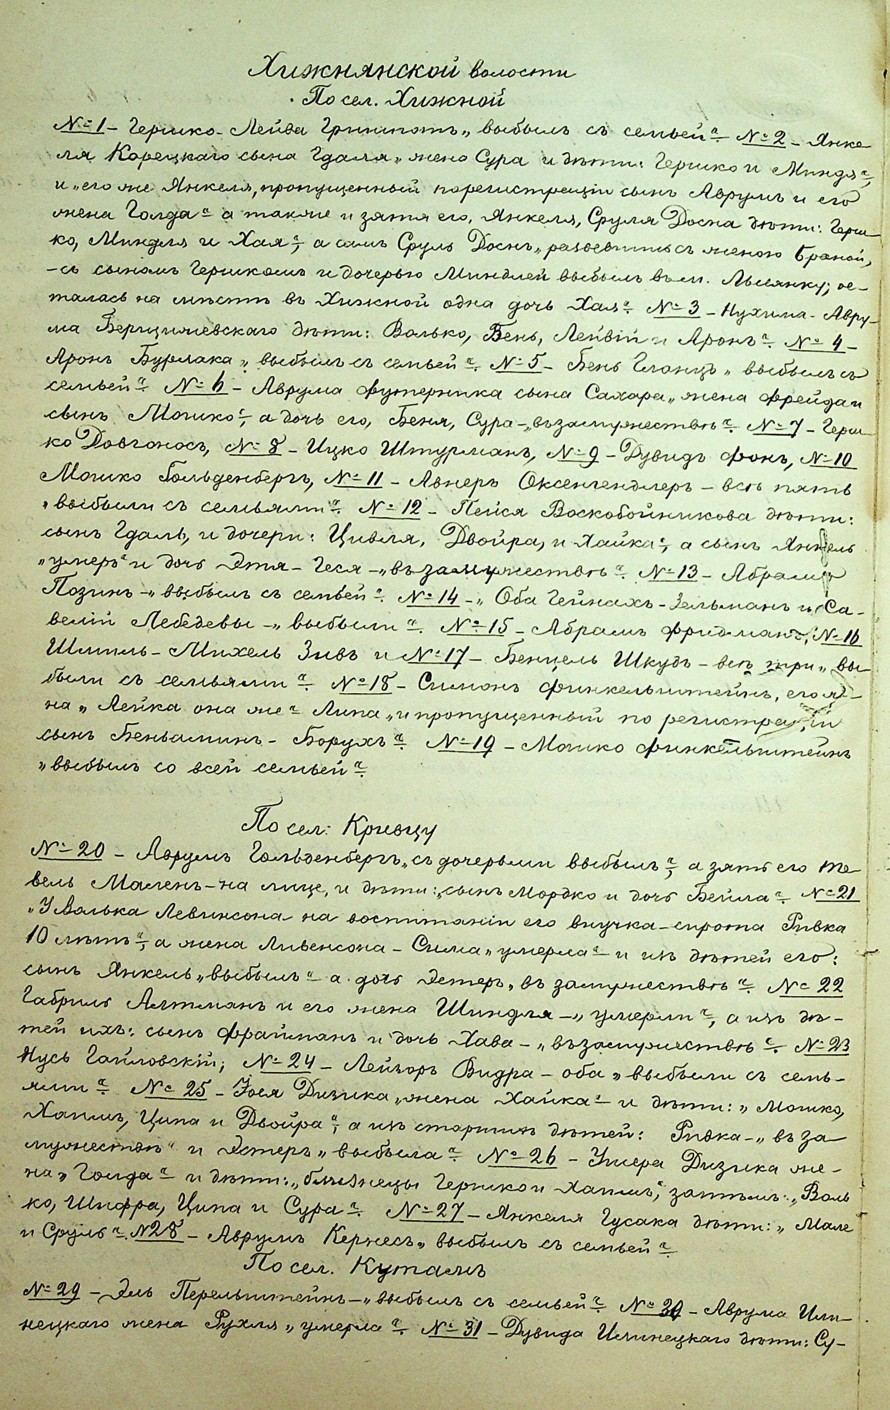 Хижнянской волости
По сел. Хижной
№ 1 – Гершко-Лейва Гринпотъ „выбылъ съ семьей“. № 2 – Янке-
ля Корецкаго сына Гдаля „жена Сура и дѣти: Гершко и Миндля“,
и „его же Янкеля, пропущенный порегистреціи сынъ Аврумъ и его
жена Голда“ а также и зятя его, Янкеля, Сруля Досна дѣти: Герш-
ко, Миндля и Хая“, а самъ Сруль Доснъ „развевшись съ женою Браной,
– съ сыномъ Гершкомъ и дочерью Миндлей выбылъ въ м. Лысянку; ос-
талась на мѣстѣ въ Хижной одна дочь Хая“. № 3 – Нухима-Авру-
ма Бердичевскаго дѣти: Волько, Бень, Лейвій и Аронъ“. № 4 –
Аронъ Бурлака „выбылъ съ семьей“. № 5 – Бень Гланцъ „выбылъ съ
семьей“. № 6 – Аврума Футерника сына Сахара „жена Фрейда и
сынъ Мошко“, а дочь его, Беня, Сура – „възамужествѣ“. № 7 – Герш-
ко Довгоносъ, № 8 – Ицко Штурманъ, № 9 – Дувидъ Фонъ, № 10
Мошко Гольденбергъ, № 11 – Авнеръ Оксенгендлеръ – всѣ пять
„выбыли съ семьями“. № 12 – Пейся Воскобойникова дѣти:
сынъ Гдаль, и дочери: Цивля, Двойра, и Хайка“, а сынъ Янкель
„умеръ“ и дочь Этя-Геся – „възамужествѣ“. № 13 – Абрамъ
Позинъ – „выбылъ съ семьей“. № 14 – „Оба Гейнахъ-Зельманъ и Са-
велій Лебедевы – „выбыли“. № 15 – Абрамъ Фридманъ, № 16
Шмиль-Михель Зивъ и № 17 – Бенцель Шкудъ – всѣ три „вы-
были съ семьями“. № 18 – Симонъ Финкельштейнъ, его же-
на „Лейка она же“ Липа „и пропущенный по регистреціи
сынъ Беньаминъ-Борухъ“. № 19 – Мошко Финкельштейнъ
„выбылъ со всей семьей“.
По сел: Кривцу
№ 20 – Аврумъ Гольденбергъ „съ дочерьми выбылъ“, а зять его Те-
вель Маленъ – на лице, и дѣти: „сынъ Мордко и дочь Бейла“. № 21
„У Волька Левинсона на воспитаніи его внучка-сирота Ривка
10 лѣтъ“, а жена Ливенсона – Сима „умерла“ и изъ дѣтей его:
сынъ Янкель „выбылъ“ а дочь Эстеръ „въ замужествѣ“. № 22
Габриль Алтманъ и его жена Шиндля – „умерли“, а изъ дѣ-
тей ихъ: сынъ Фрайманъ и дочь Хава – „възамужествѣ“. № 23
Нусь Гайловскій; № 24 – Лейзоръ Видра – оба „выбыли съ семь-
ями“. № 25 – Іося Дизика „жена Хайка“ и дѣти: „Мошко,
Хаимъ, Ципа и Двойра“, а изъ старшихъ дѣтей: Ривка – „въ за
мужествѣ“ и Эстеръ „выбыла“. № 26 – Ушера Дизика же-
на „Голда“ и дѣти: „близнецы Гершко и Хаимъ“, затѣмъ: „Воль
ко, Шифра, Ципа и Сура“. № 27 – Янкеля Гусака дѣти: „Мале
и Сруль“. № 28 – Аврумъ Кернесъ „выбылъ съ семьей“.
По сел. Кутамъ
№ 29 – Эль Перельштейнъ – „выбылъ съ семьей“. № 30 – Аврума Или-
нецкаго жена Рухля „умерла“. № 31 – Дувида Илинецкаго дѣти: Су-